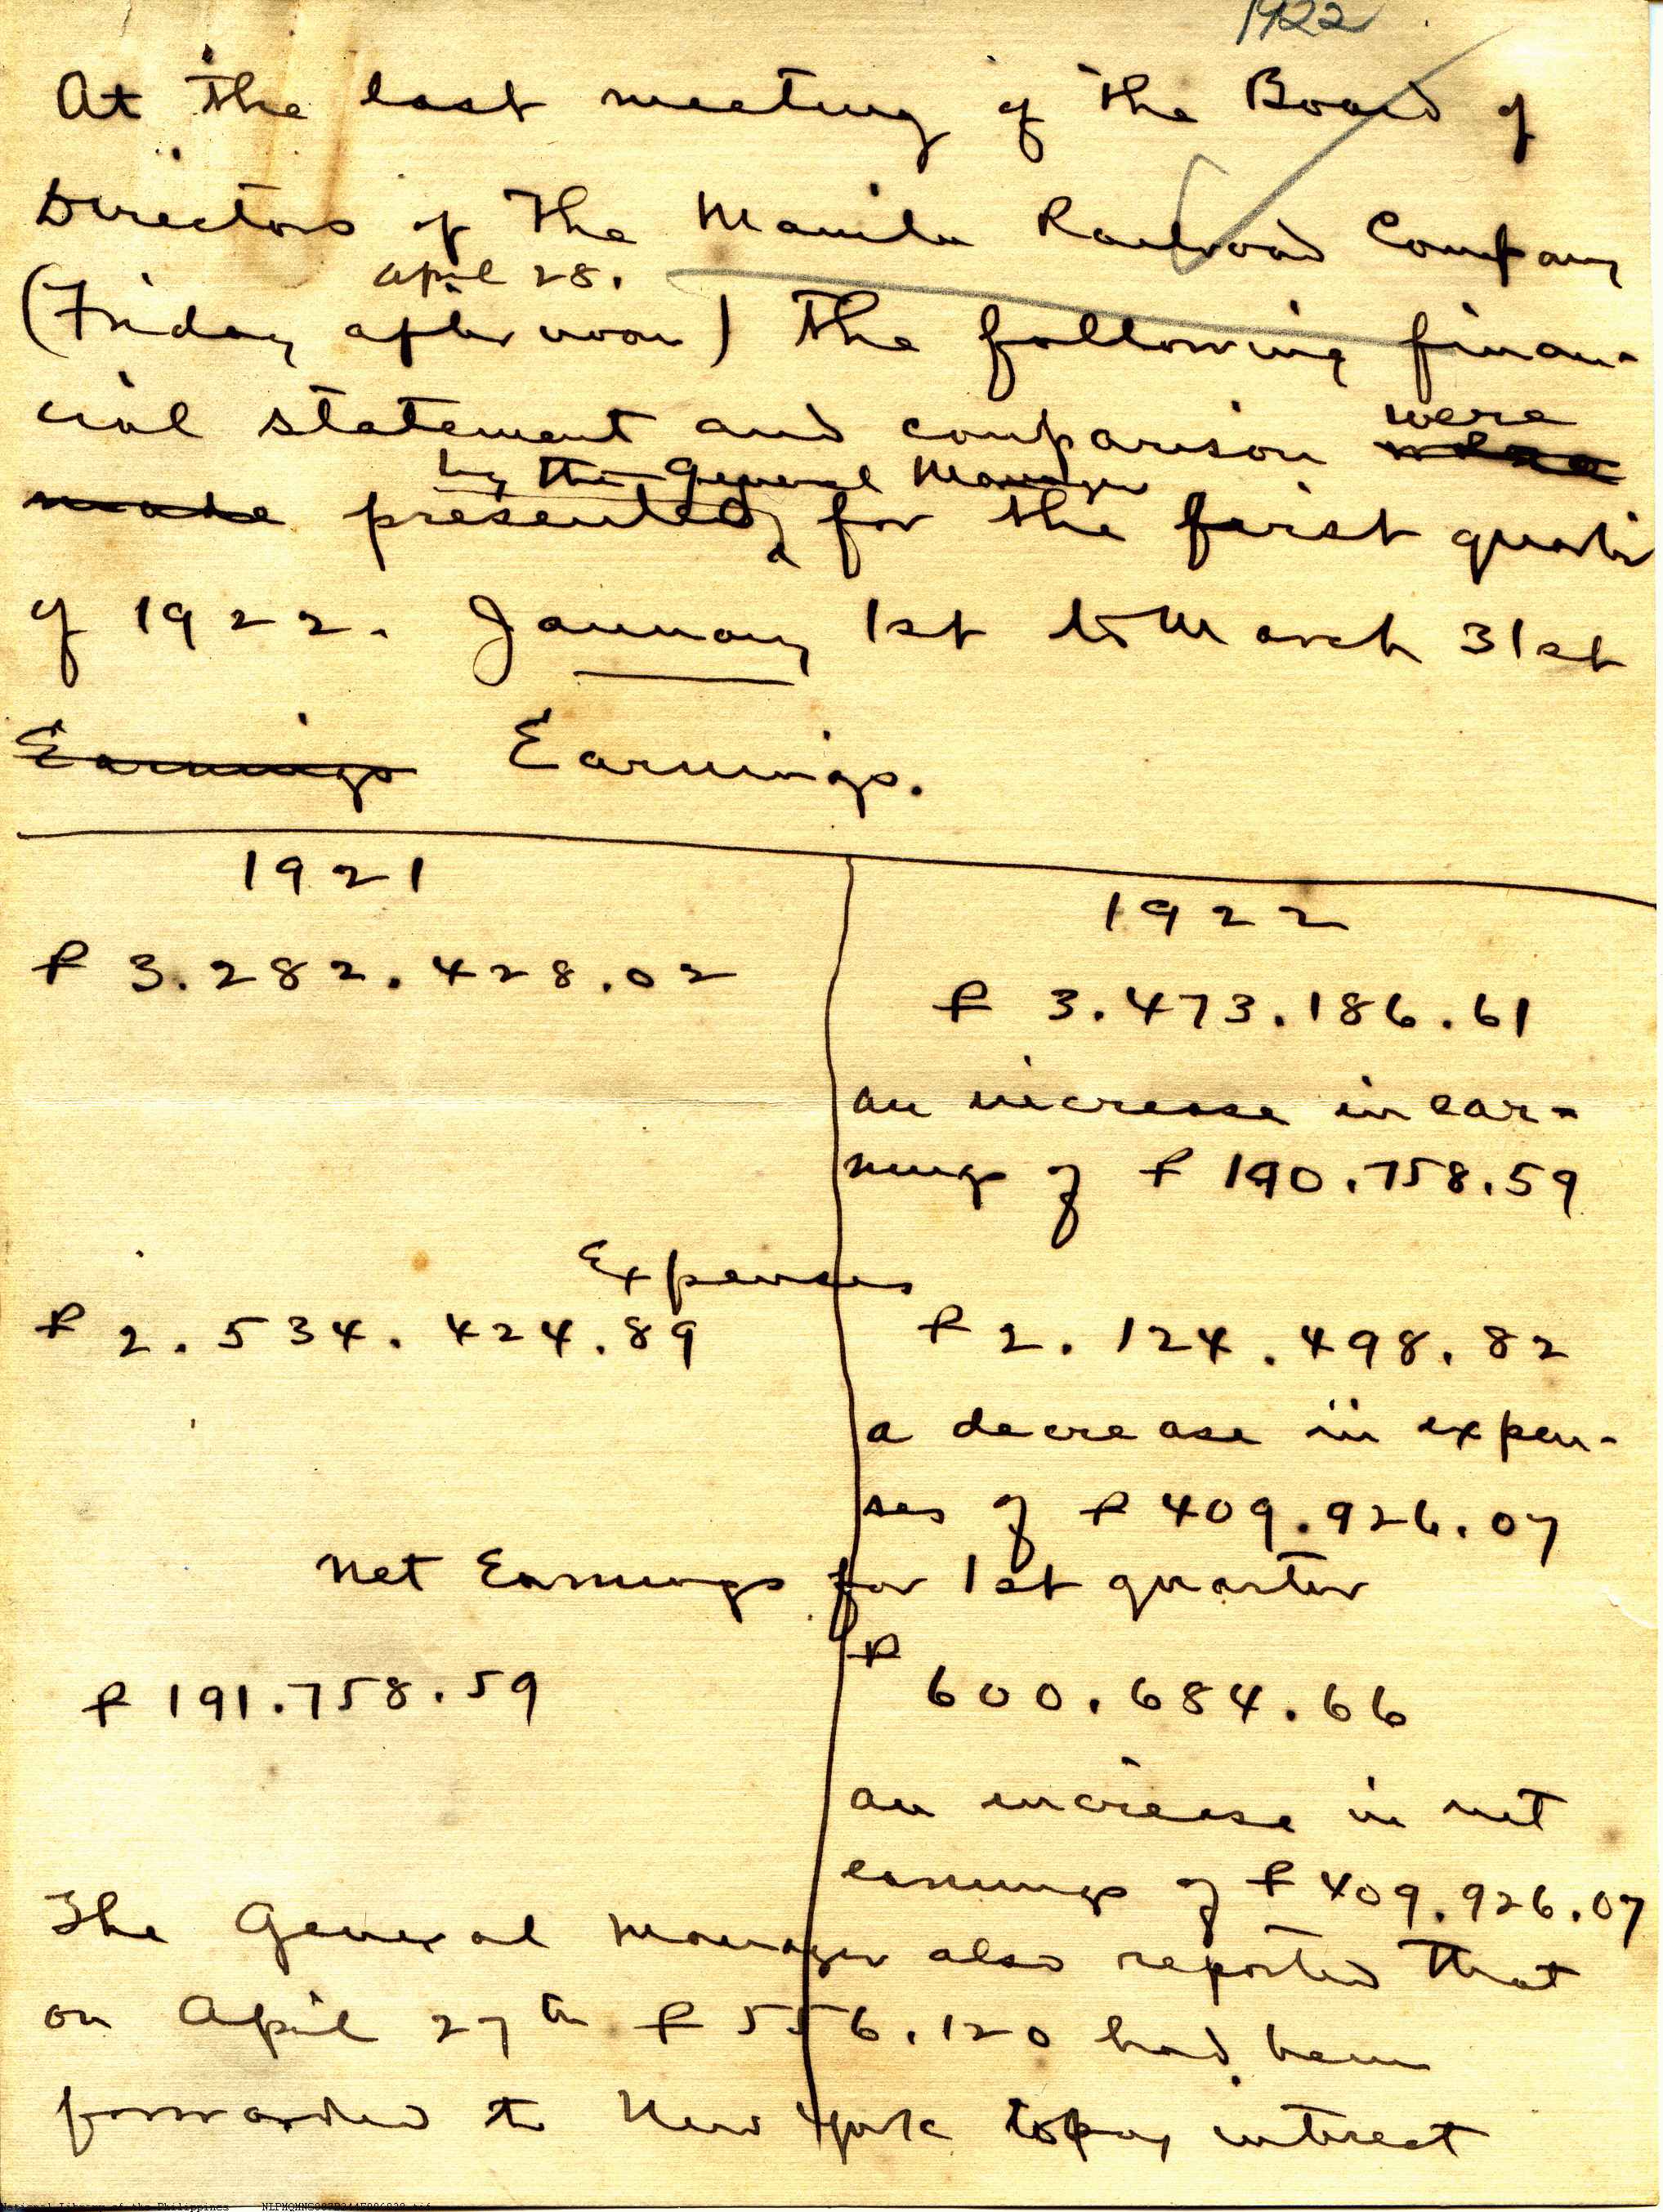 1922
At the last meeting of the Board of
Directors of The Manila Railroad Company
April 28.
(Friday afternoon) the following finan-
cial statement and comparison were
by the General Manager
made presented, for the first quarter
of 1922. January 1st to March 31st
Earnings Earnings.
1921
₱ 3.282.428.02
1922
₱ 3.473.186.61
an increase in ear-
nings of ₱ 190.758.59
Expenses
₱ 2.534.424.89
₱ 2.124.498.82
a decrease in expen-
ses of ₱ 409.926.07
Net Earnings for 1st quarter
₱ 191.758.59
₱ 600.684.66
an increase in net
earnings of ₱ 409.926.07
The General Manager also reported that
on April 27th ₱ 556.120 had been
forwarded to New York to pay interest
National Library of the Philippines